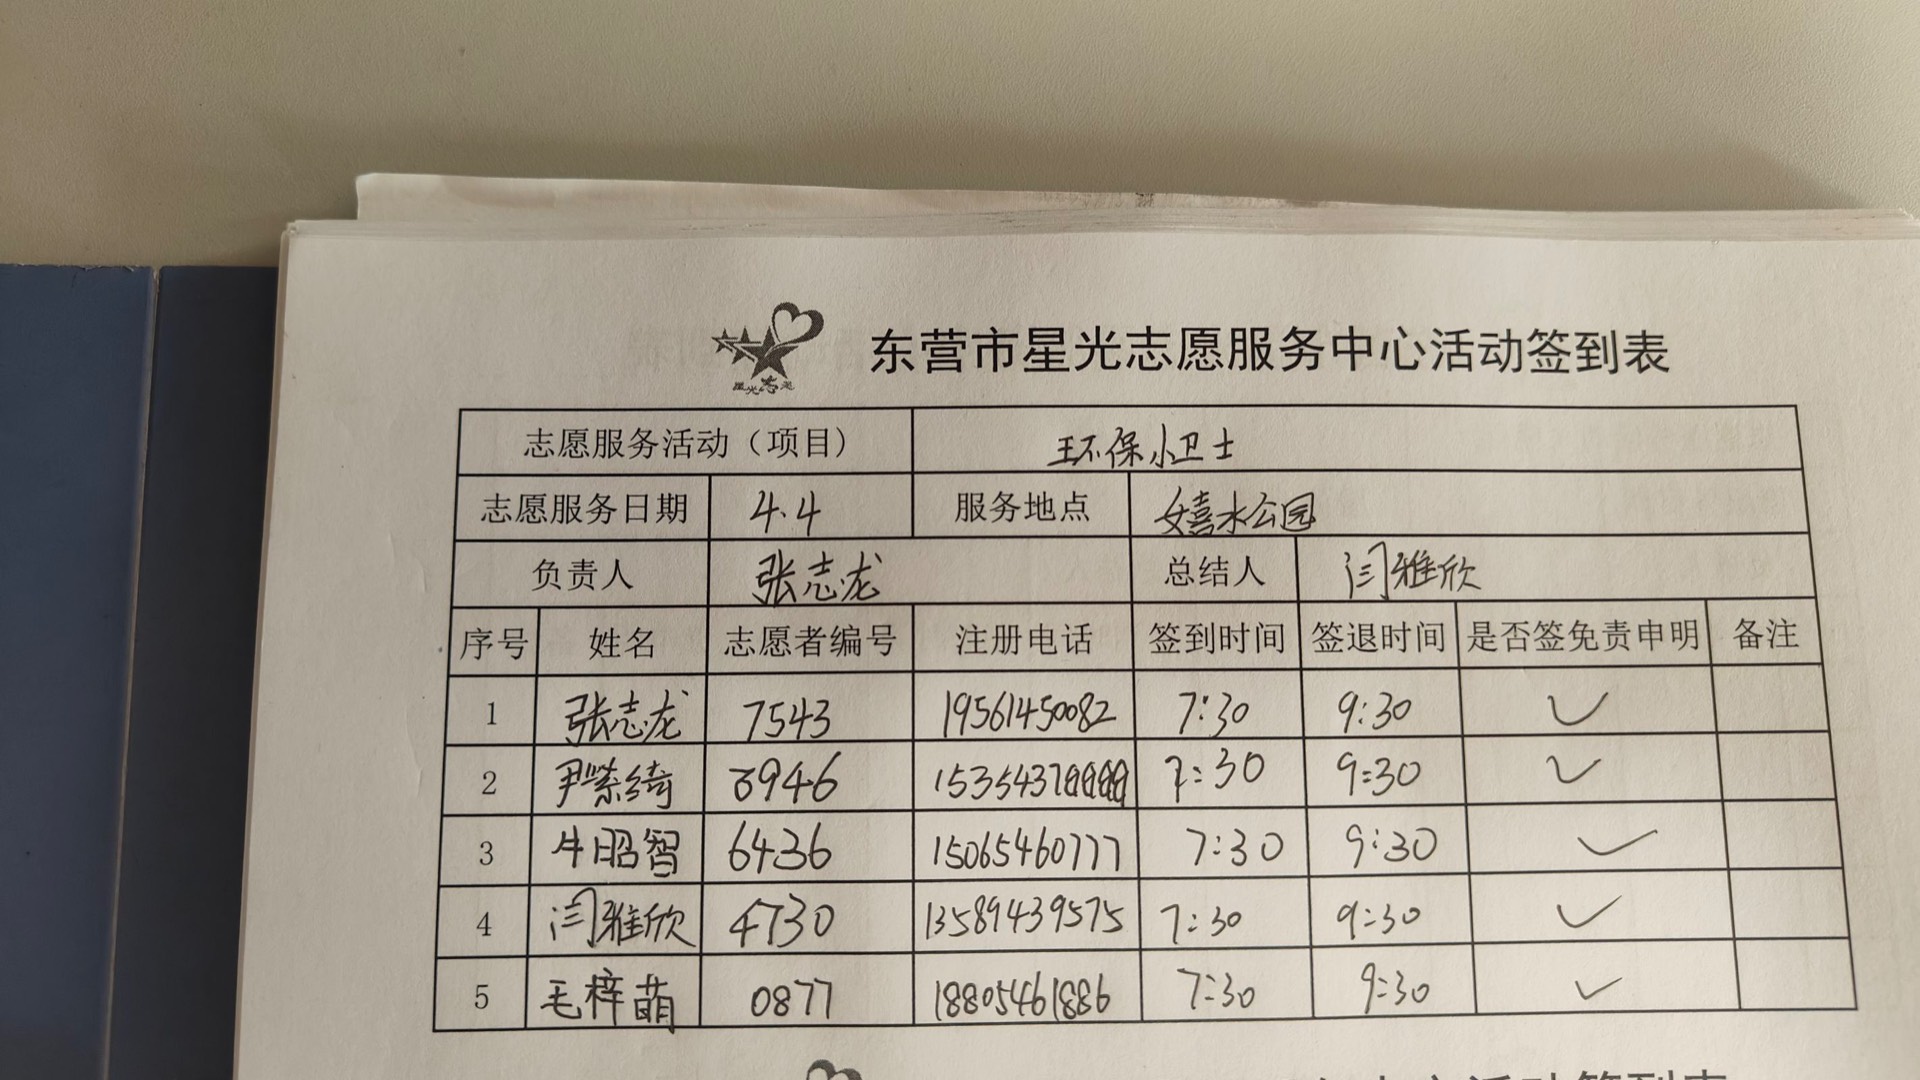 星光志愿
东营市星光志愿服务中心活动签到表
志愿服务活动（项目） 环保小卫士
志愿服务日期 4.4 服务地点 嬉水公园
负责人 张志龙 总结人 闫雅欣
序号 姓名 志愿者编号 注册电话 签到时间 签退时间 是否签免责申明 备注
1 张志龙 7543 19561450082 7:30 9:30 ✓
2 尹紫绮 8946 7:30 9:30 ✓
3 牛昭智 6436 15065460777 7:30 9:30 ✓
4 闫雅欣 4730 13589439575 7:30 9:30 ✓
5 毛梓萌 0877 18805461886 7:30 9:30 ✓